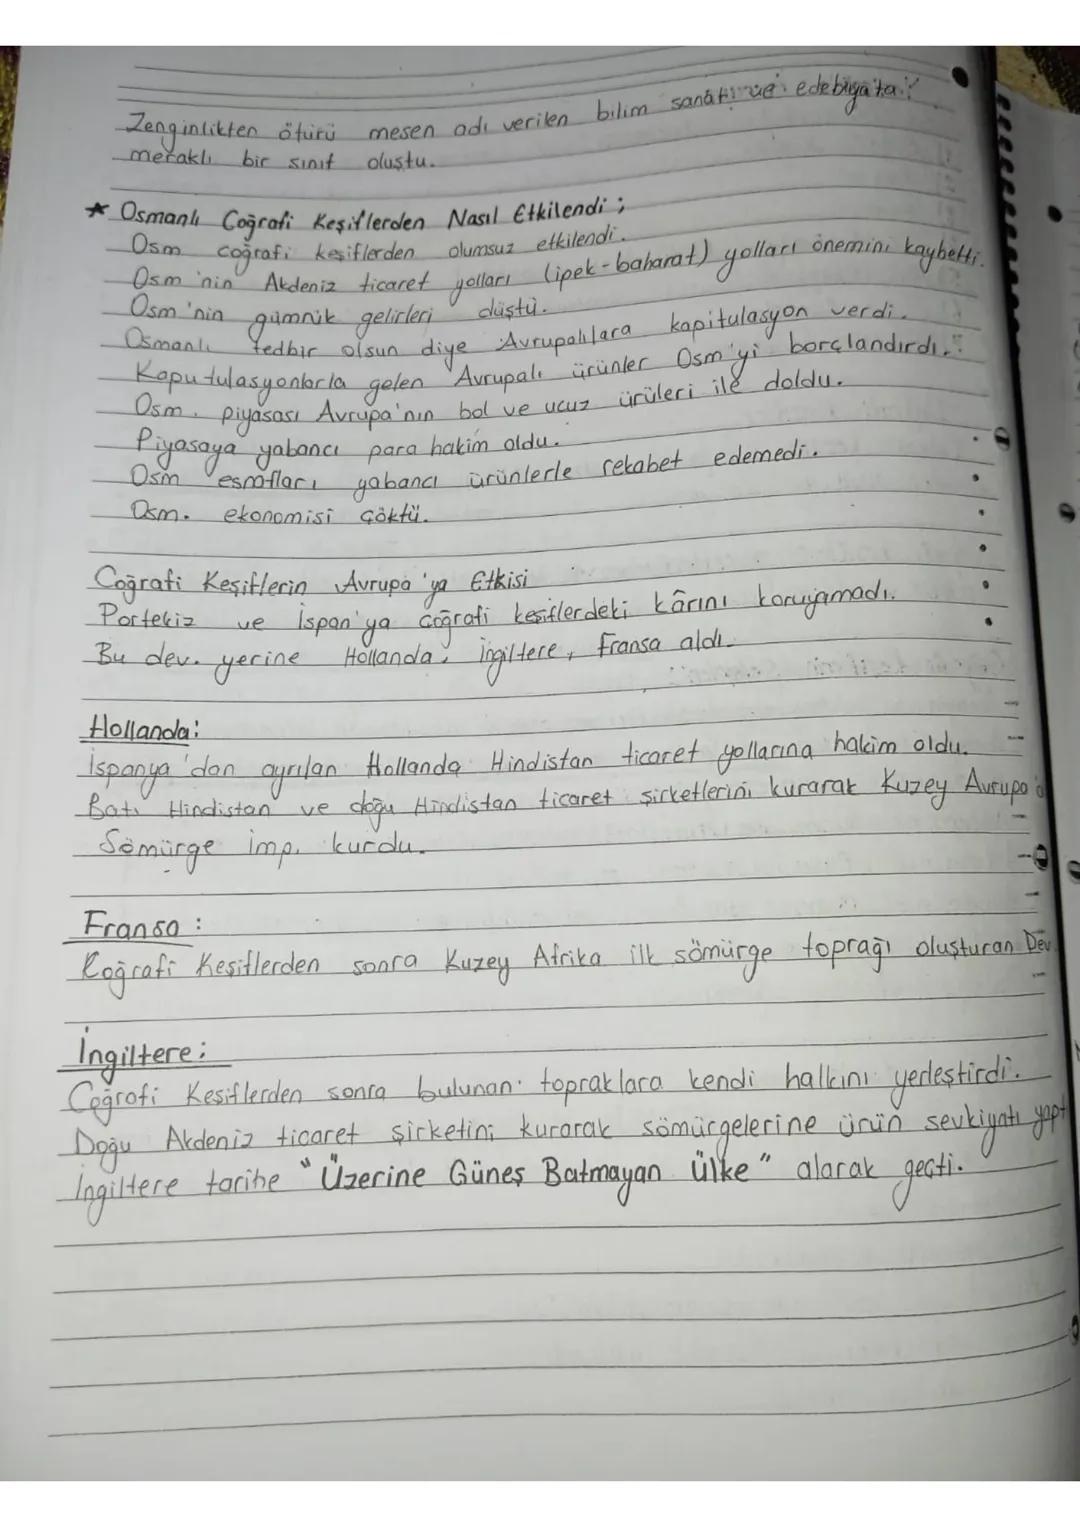 Zenginlikten ötürü mesen adı verilen bilim sanat ve edebiyata
meraklı bir sınıf oluştu.
* Osmanlı Coğrafi Keşiflerden Nasıl Etkilendi ;
Osm coğrafi keşiflerden olumsuz etkilendi.
Osm'nin Akdeniz ticaret yolları (ipek-baharat) yolları önemini kaybetti.
Osm'nin gümrük gelirleri düştü.
Osmanlı tedbir olsun diye Avrupalılara kapitulasyon verdi.
Kaputulasyonlarla gelen Avrupalı ürünler Osm'yi borçlandırdı.
Osm. piyasası Avrupa'nın bol ve ucuz ürüleri ile doldu.
Piyasaya yabancı para hakim oldu.
Osm esnafları yabancı ürünlerle rekabet edemedi.
Osm. ekonomisi çöktü.
Coğrafi Keşiflerin Avrupa'ya Etkisi
Portekiz ve İspan'ya coğrafi keşiflerdeki kârını koruyamadı.
Bu dev. yerine Hollanda, İngiltere, Fransa aldı.
Hollanda:
İspanya'dan ayrılan Hollanda Hindistan ticaret yollarına hakim oldu.
Batı Hindistan ve doğu Hindistan ticaret şirketlerini kurarak Kuzey Avrupa
Sömürge imp. kurdu.
Fransa :
Coğrafi Keşiflerden sonra Kuzey Afrika ilk sömürge toprağı oluşturan Dev
İngiltere:
Coğrafi Keşiflerden sonra bulunan topraklara kendi halkını yerleştirdi.
Doğu Akdeniz ticaret şirketini kurarak sömürgelerine ürün sevkiyatı yaptı
İngiltere tarihe "Üzerine Güneş Batmayan Ülke" olarak geçti.